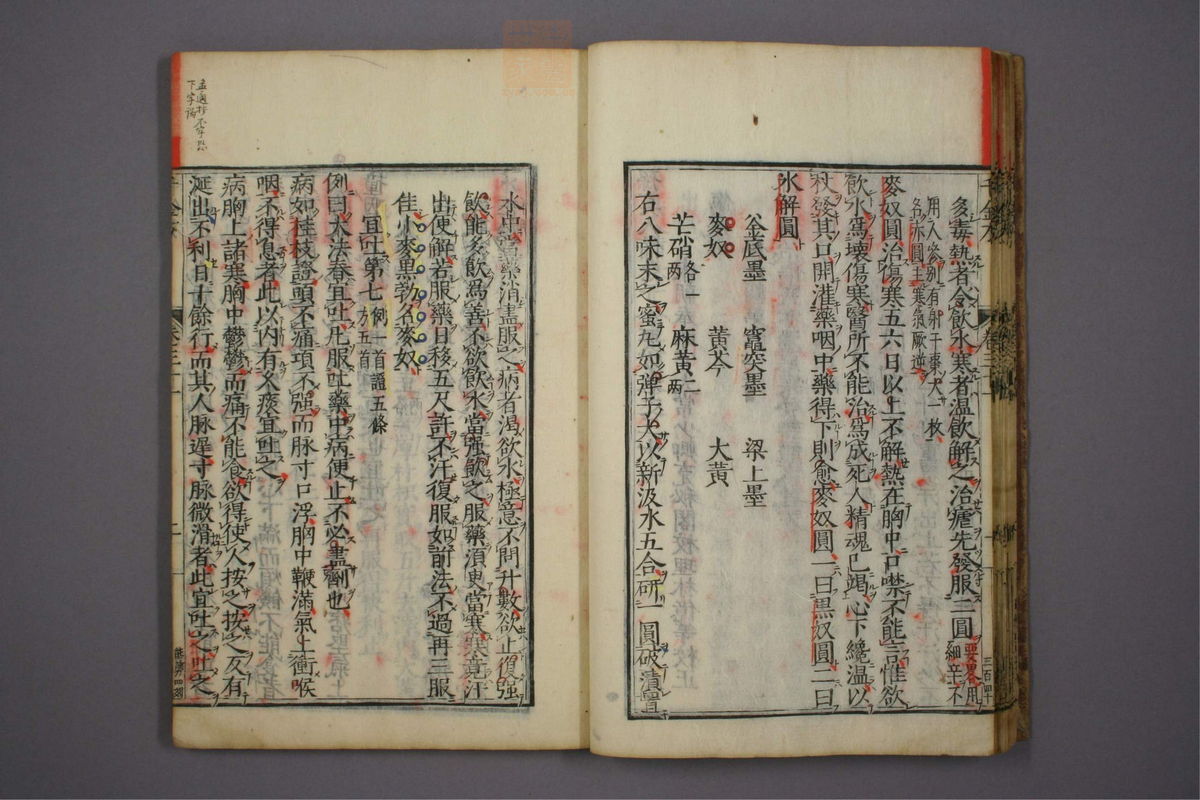 多毒熱者令飲水寒者温飲解之治瘧先發服二圓要畧用細辛不
用人參別有射干棗大一枚名赤圓主寒氣厥逆
麥奴圓治傷寒五六日以上不解熱在胸中口噤不能言惟欲
飲水爲壞傷寒醫所不能治爲成死人精魂已竭心下纔温以
杖發其口開灌藥咽中藥得下則愈麥奴圓一曰黑奴圓二曰
水解圓
釜底墨 竈突墨 梁上墨
麥奴 黃芩 大黃
芒硝各一兩 麻黃二兩
右八味末之蜜丸如彈子大以新汲水五合研一圓破漬置
水中當藥消盡服之病者渴欲水極意不問升數欲止復強
飲能多飲爲善不欲飲水當強飲之服藥須臾當寒寒竟汗
出便解若服藥日移五尺許不汗復服如前法不過再三服
佳小麥黑勃名麥奴
宜吐第七例一首證五條方五首
例曰大法春宜吐凡服吐藥中病便止不必盡劑也
病如桂枝證頭不痛項不強而脉寸口浮胸中鞕滿氣上衝喉
咽不得息者此以内有久痰宜吐之
病胸上諸寒胸中鬱鬱而痛不能食欲得使人按之按之反有
涎出下利日十餘行而其人脉遲寸脉微滑者此宜吐之吐之